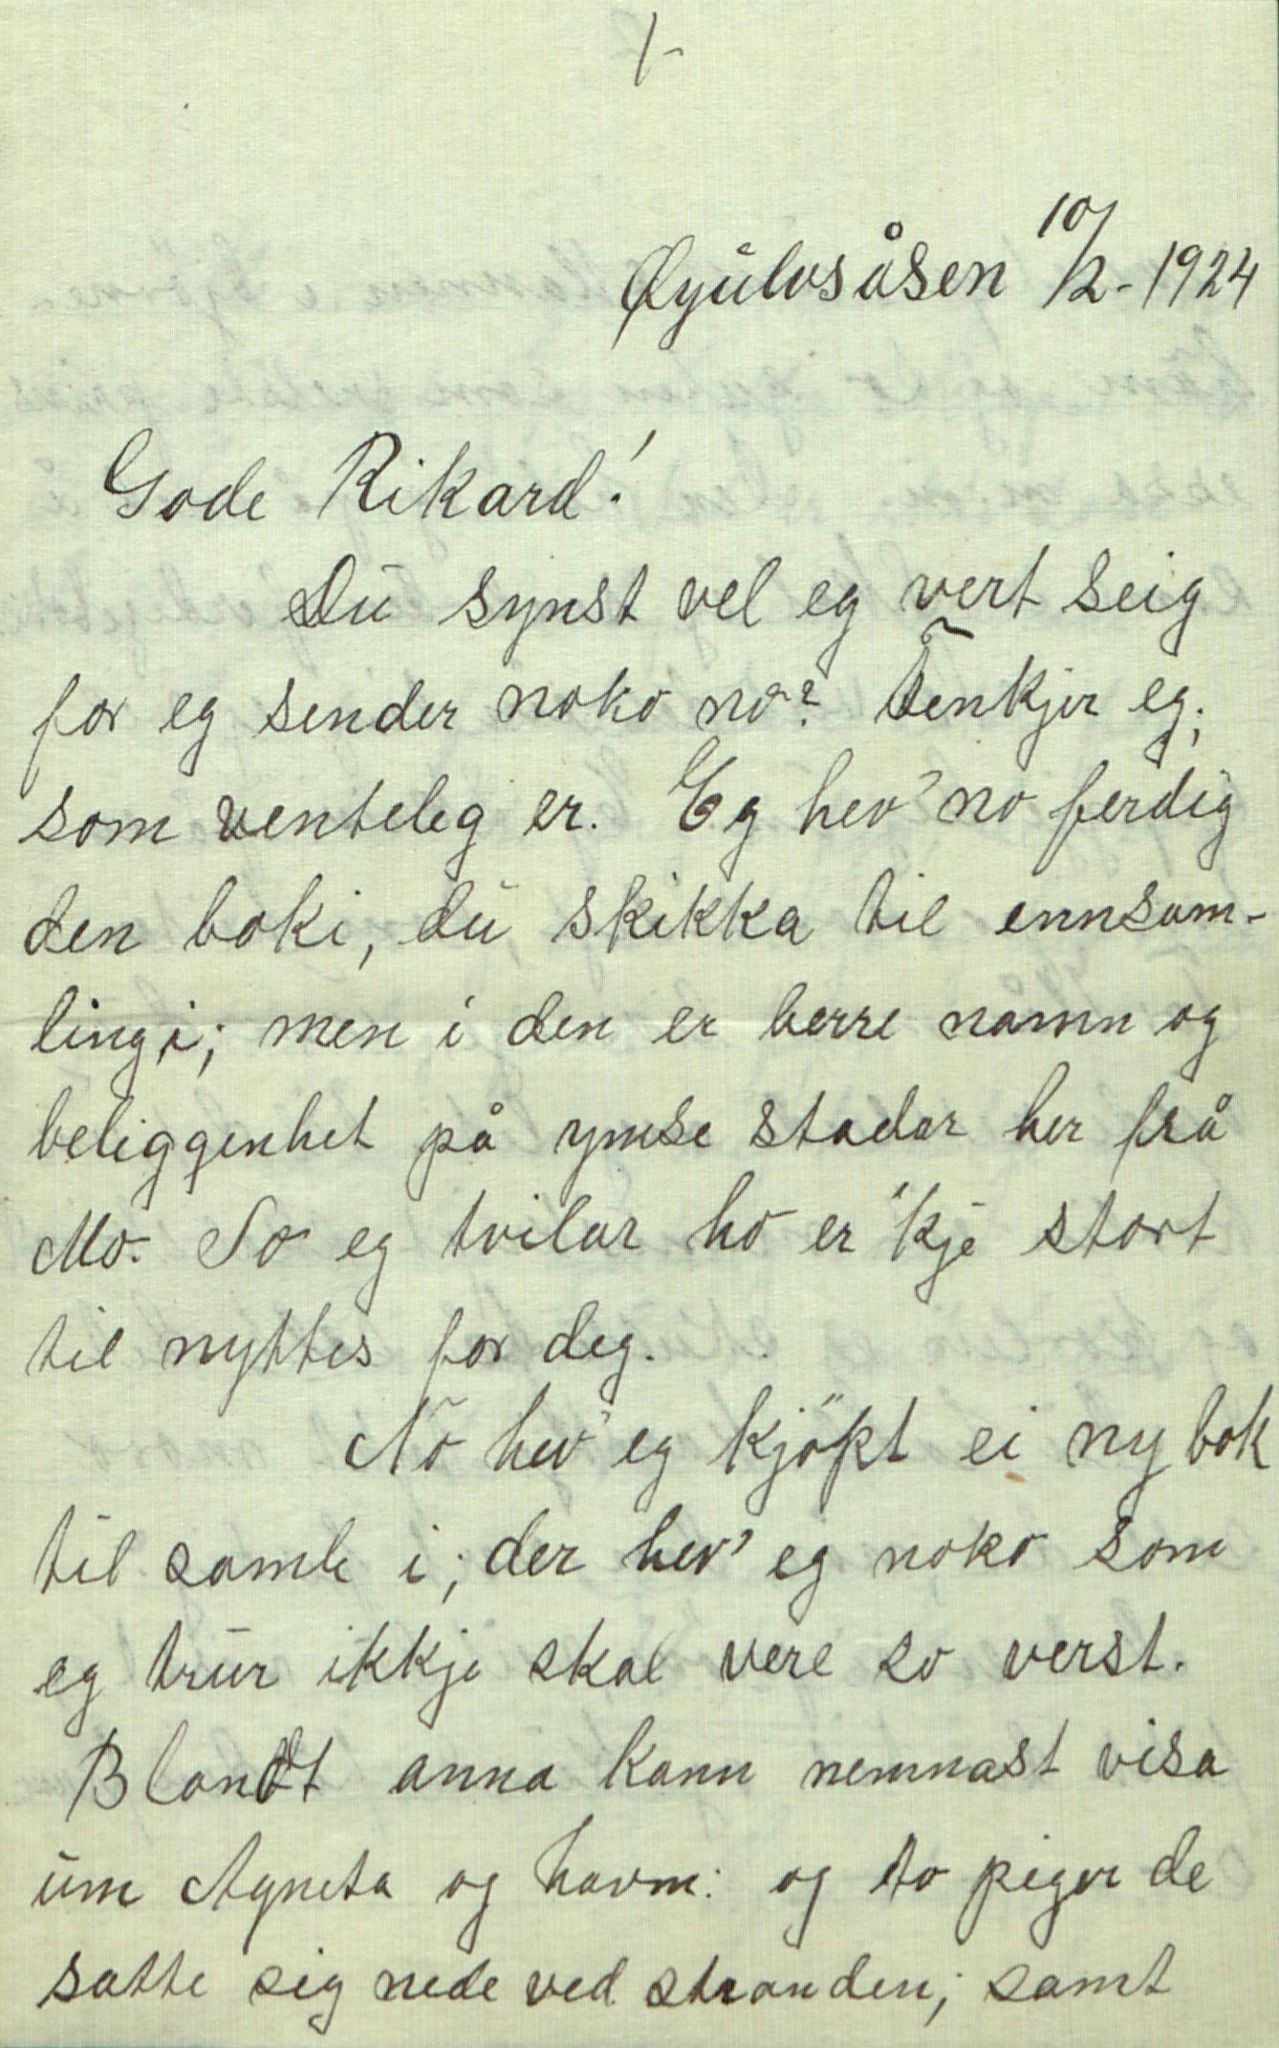 1-
Øyulvsåsen 10/2-1924
Gode Rikard!
Du synst vel eg vert seig
for eg sender noko no? Tenkjer eg;
som venteleg er. Eg hev' no ferdig
den boki, du skikka til ennsam-
lingi; men i den er berre namn og
beliggenhet på ymse stadar her frå
Mo. So eg tvilar ho er 'kje stort
til nyttes for deg.
No hev' eg kjöpt ei ny bok
til samle i; der hev' eg noko som
eg trur ikkje skal vere so verst.
Blandt anna kann nemnast visa
um Agneta og havm: og to piger de
satte sig nede ved stranden; samt